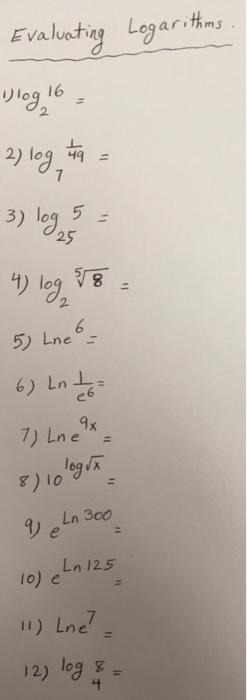 Evaluating Logarithms.
1) log₂ 16 =
2) log₇ 1/49 =
3) log₂₅ 5 =
4) log₂ ⁵√8 =
5) Lne⁶ =
6) Ln 1/e⁶ =
7) Lne⁹ˣ =
8) 10^log√x =
9) e^Ln 300 =
10) e^Ln 125 =
11) Lne⁷ =
12) log₄ 8 =